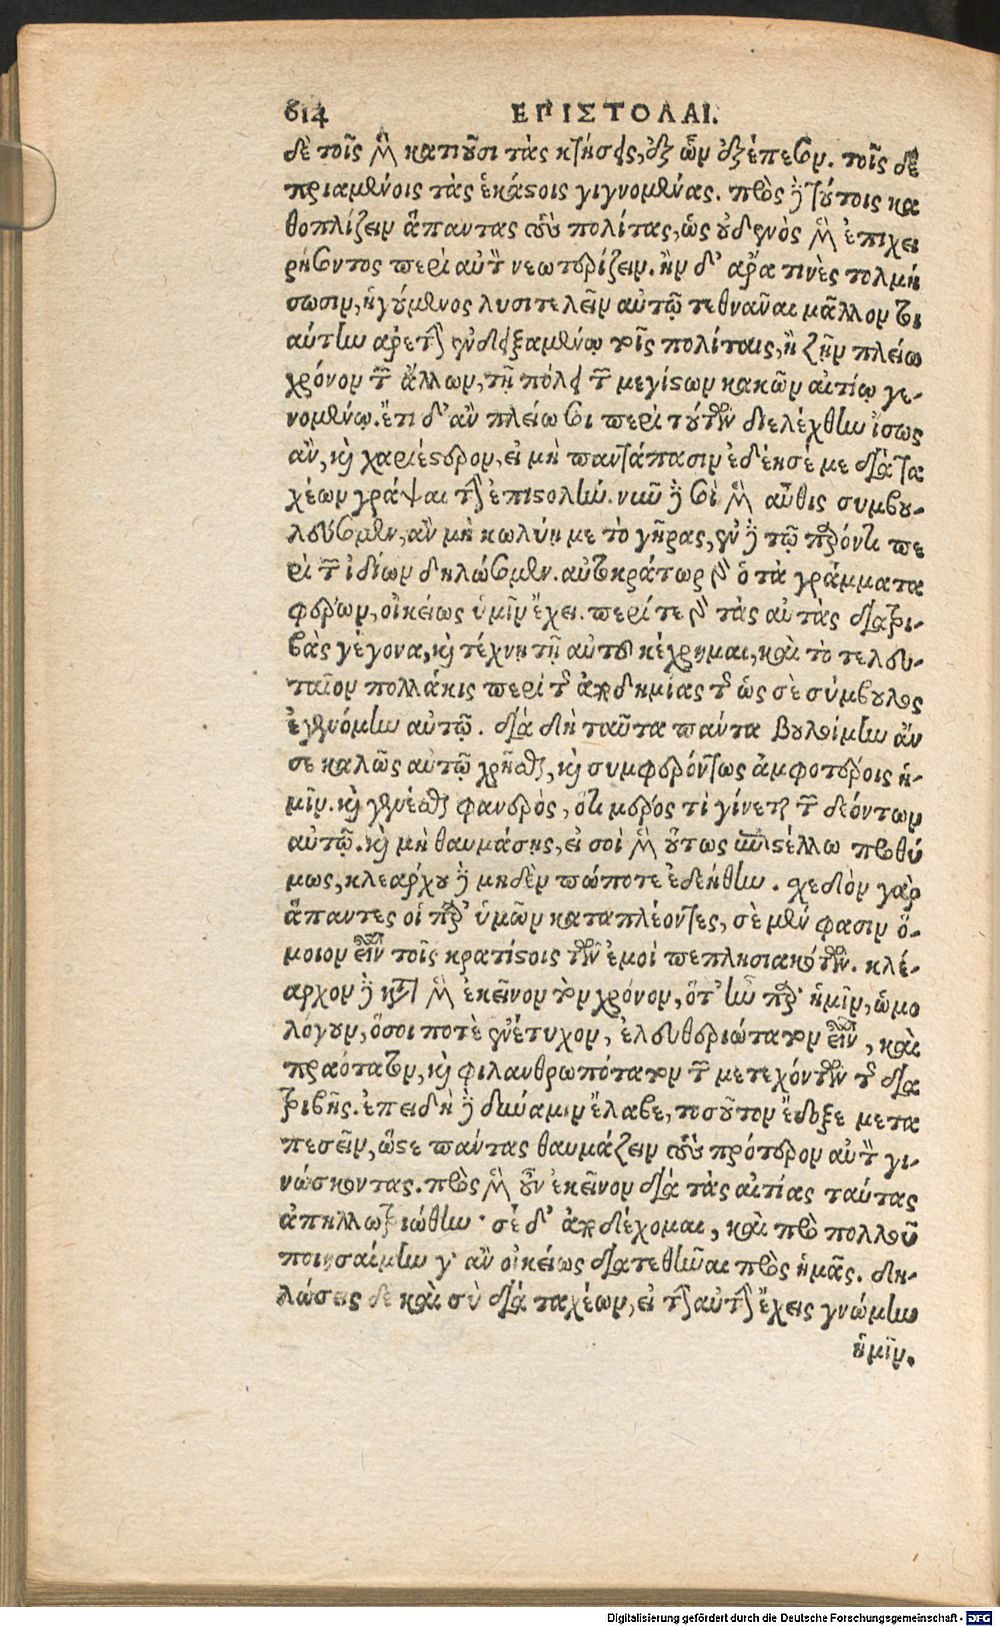 614 ΕΠΙΣΤΟΛΑΙ.
δὲ τοῖς μὲν κατιοῦσι τὰς κτήσεις, ἐξ ὧν ἐξέπεσον. τοῖς δὲ
πριαμένοις τὰς ἑκάστοις γιγνομένας. πρὸς δὲ τούτοις κα
θοπλίζειν ἅπαντας τοὺς πολίτας, ὡς οὐδενὸς μὲν ἐπιχει
ρήσοντος περὶ αὐτῶν νεωτερίζειν. ἢν δ' ἄρα τινὲς τολμή
σωσιν, ἡγούμενος λυσιτελεῖν αὐτῷ τεθνᾶναι μᾶλλον τοι
αύτην ἀρετὴν ἐνδειξαμένῳ τοῖς πολίταις, ἢ ζῆν πλείω
χρόνον τῶν ἄλλων, τῇ πόλει τῶν μεγίστων κακῶν αἰτίῳ γε-
νομένῳ. ἔτι δ' ἂν πλείω σοι περὶ τούτων διελέχθην ἴσως
ἂν, καὶ χαριέστερον, εἰ μὴ παντάπασιν ἐδέησέ με διὰ τα
χέων γράψαι τὴν ἐπιστολήν. νῦν δὲ σοὶ μὲν αὖθις συμβου-
λεύσομεν, ἂν μὴ κωλύῃ με τὸ γῆρας, ἐν δὲ τῷ παρόντι πε
ρὶ τῶν ἰδίων δηλώσομεν. αὐτοκράτωρ γὰρ ὁ τὰ γράμματα
φέρων, οἰκείως ὑμῖν ἔχει. περί τε γὰρ τὰς αὐτὰς διατρι-
βὰς γέγονα, καὶ τέχνῃ τῇ αὐτοῦ κέχρημαι, καὶ τὸ τελευ-
ταῖον πολλάκις περὶ τῆς ἀποδημίας τῆς ὡς σὲ σύμβουλος
ἐγενόμην αὐτῷ. διὰ δὴ ταῦτα πάντα βουλοίμην ἄν
σε καλῶς αὐτῷ χρῆσθαι, καὶ συμφερόντως ἀμφοτέροις ἡ-
μῖν. καὶ γενέσθαι φανερὸς, ὅτι μέρος τὶ γίνεται τῶν δεόντων
αὐτῷ. καὶ μὴ θαυμάσῃς, εἰ σοὶ μὲν οὕτως ἐπιστέλλω προθύ
μως, κλεάρχου δὲ μηδὲν πώποτε ἐδεήθην. σχεδὸν γὰρ
ἅπαντες οἱ παρ' ὑμῶν καταπλέοντες, σὲ μέν φασιν ὅ-
μοιον εἶναι τοῖς κρατίστοις τῶν ἐμοὶ πεπλησιακότων. κλέ-
αρχον δὲ κατὰ μὲν ἐκεῖνον τὸν χρόνον, ὅτ' ἦν παρ' ἡμῖν, ὡμο
λόγουν, ὅσοι ποτὲ ἐνέτυχον, ἐλευθεριώτατον εἶναι, καὶ
πραότατον, καὶ φιλανθρωπότατον τῶν μετεχόντων τῆς δια
τριβῆς. ἐπειδὴ δὲ δύναμιν ἔλαβε, τοσοῦτον ἔδοξε μετα
πεσεῖν, ὥστε πάντας θαυμάζειν τοὺς πρότερον αὐτὸν γι-
νώσκοντας. πρὸς μὲν οὖν ἐκεῖνον διὰ τὰς αἰτίας ταύτας
ἀπηλλωτριώθην· σὲ δ' ἀποδέχομαι, καὶ πρὸ πολλοῦ
ποιησαίμην γ' ἂν οἰκείως διατεθῆναι πρὸς ἡμᾶς. δη-
λώσεις δὲ καὶ σὺ διὰ ταχέων, εἰ τὴν αὐτὴν ἔχεις γνώμην
ἡμῖν.
Digitalisierung gefördert durch die Deutsche Forschungsgemeinschaft - DFG